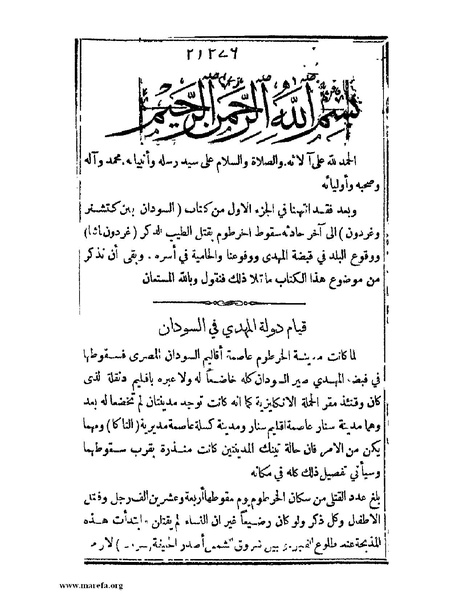 ٢١٢٧٦
بسم الله الرحمن الرحيم
الحمد لله على آلائه. والصلاة والسلام على سيد رسله وأنبيائه. محمد وآله
وصحبه وأوليائه
وبعد فقد انتهينا في الجزء الاول من كتاب (السودان بين كتشنر
وغردون) الى آخر حادثه سقوط الخرطوم بقتل الطيب الذكر (غردون باشا)
ووقوع البلد في قبضة المهدى ووقوعنا والحامية في أسره. وبقى أن نذكر
من موضوع هذا الكتاب ما تلا ذلك فنقول وبالله المستعان
قيام دولة المهدي في السودان
لما كانت مدينة الخرطوم عاصمة أقاليم السودان المصرى فسقوطها
في قبض المهدي صير السودان كله خاضعاً له ولا عبره باقليم دنقلة لذى
كان وقتئذ مقر الحملة الانكليزية كما انه كانت توجد مدينتان لم تخضعا له بعد
وهما مدينة سنار عاصمة اقليم سنار ومدينة كسلة عاصمة مديرية (التاكا) ومهما
يكن من الامر فان حالة تينك المدينتين كانت منذرة بقرب سقوطهما
وسيأتي تفصيل ذلك كله في مكانه
بلغ عدد القتلى من سكان الخرطوم يوم سقوطها أربعة وعشرين الف رجل وقتل
الاطفل وكل ذكر ولو كان رضيعاً غير ان النساء لم يقتلن. ابتدأت هذه
المذبحة عند طلوع الفجر وبين شروق الشمس أصدر الخليفة
www.marefa.org